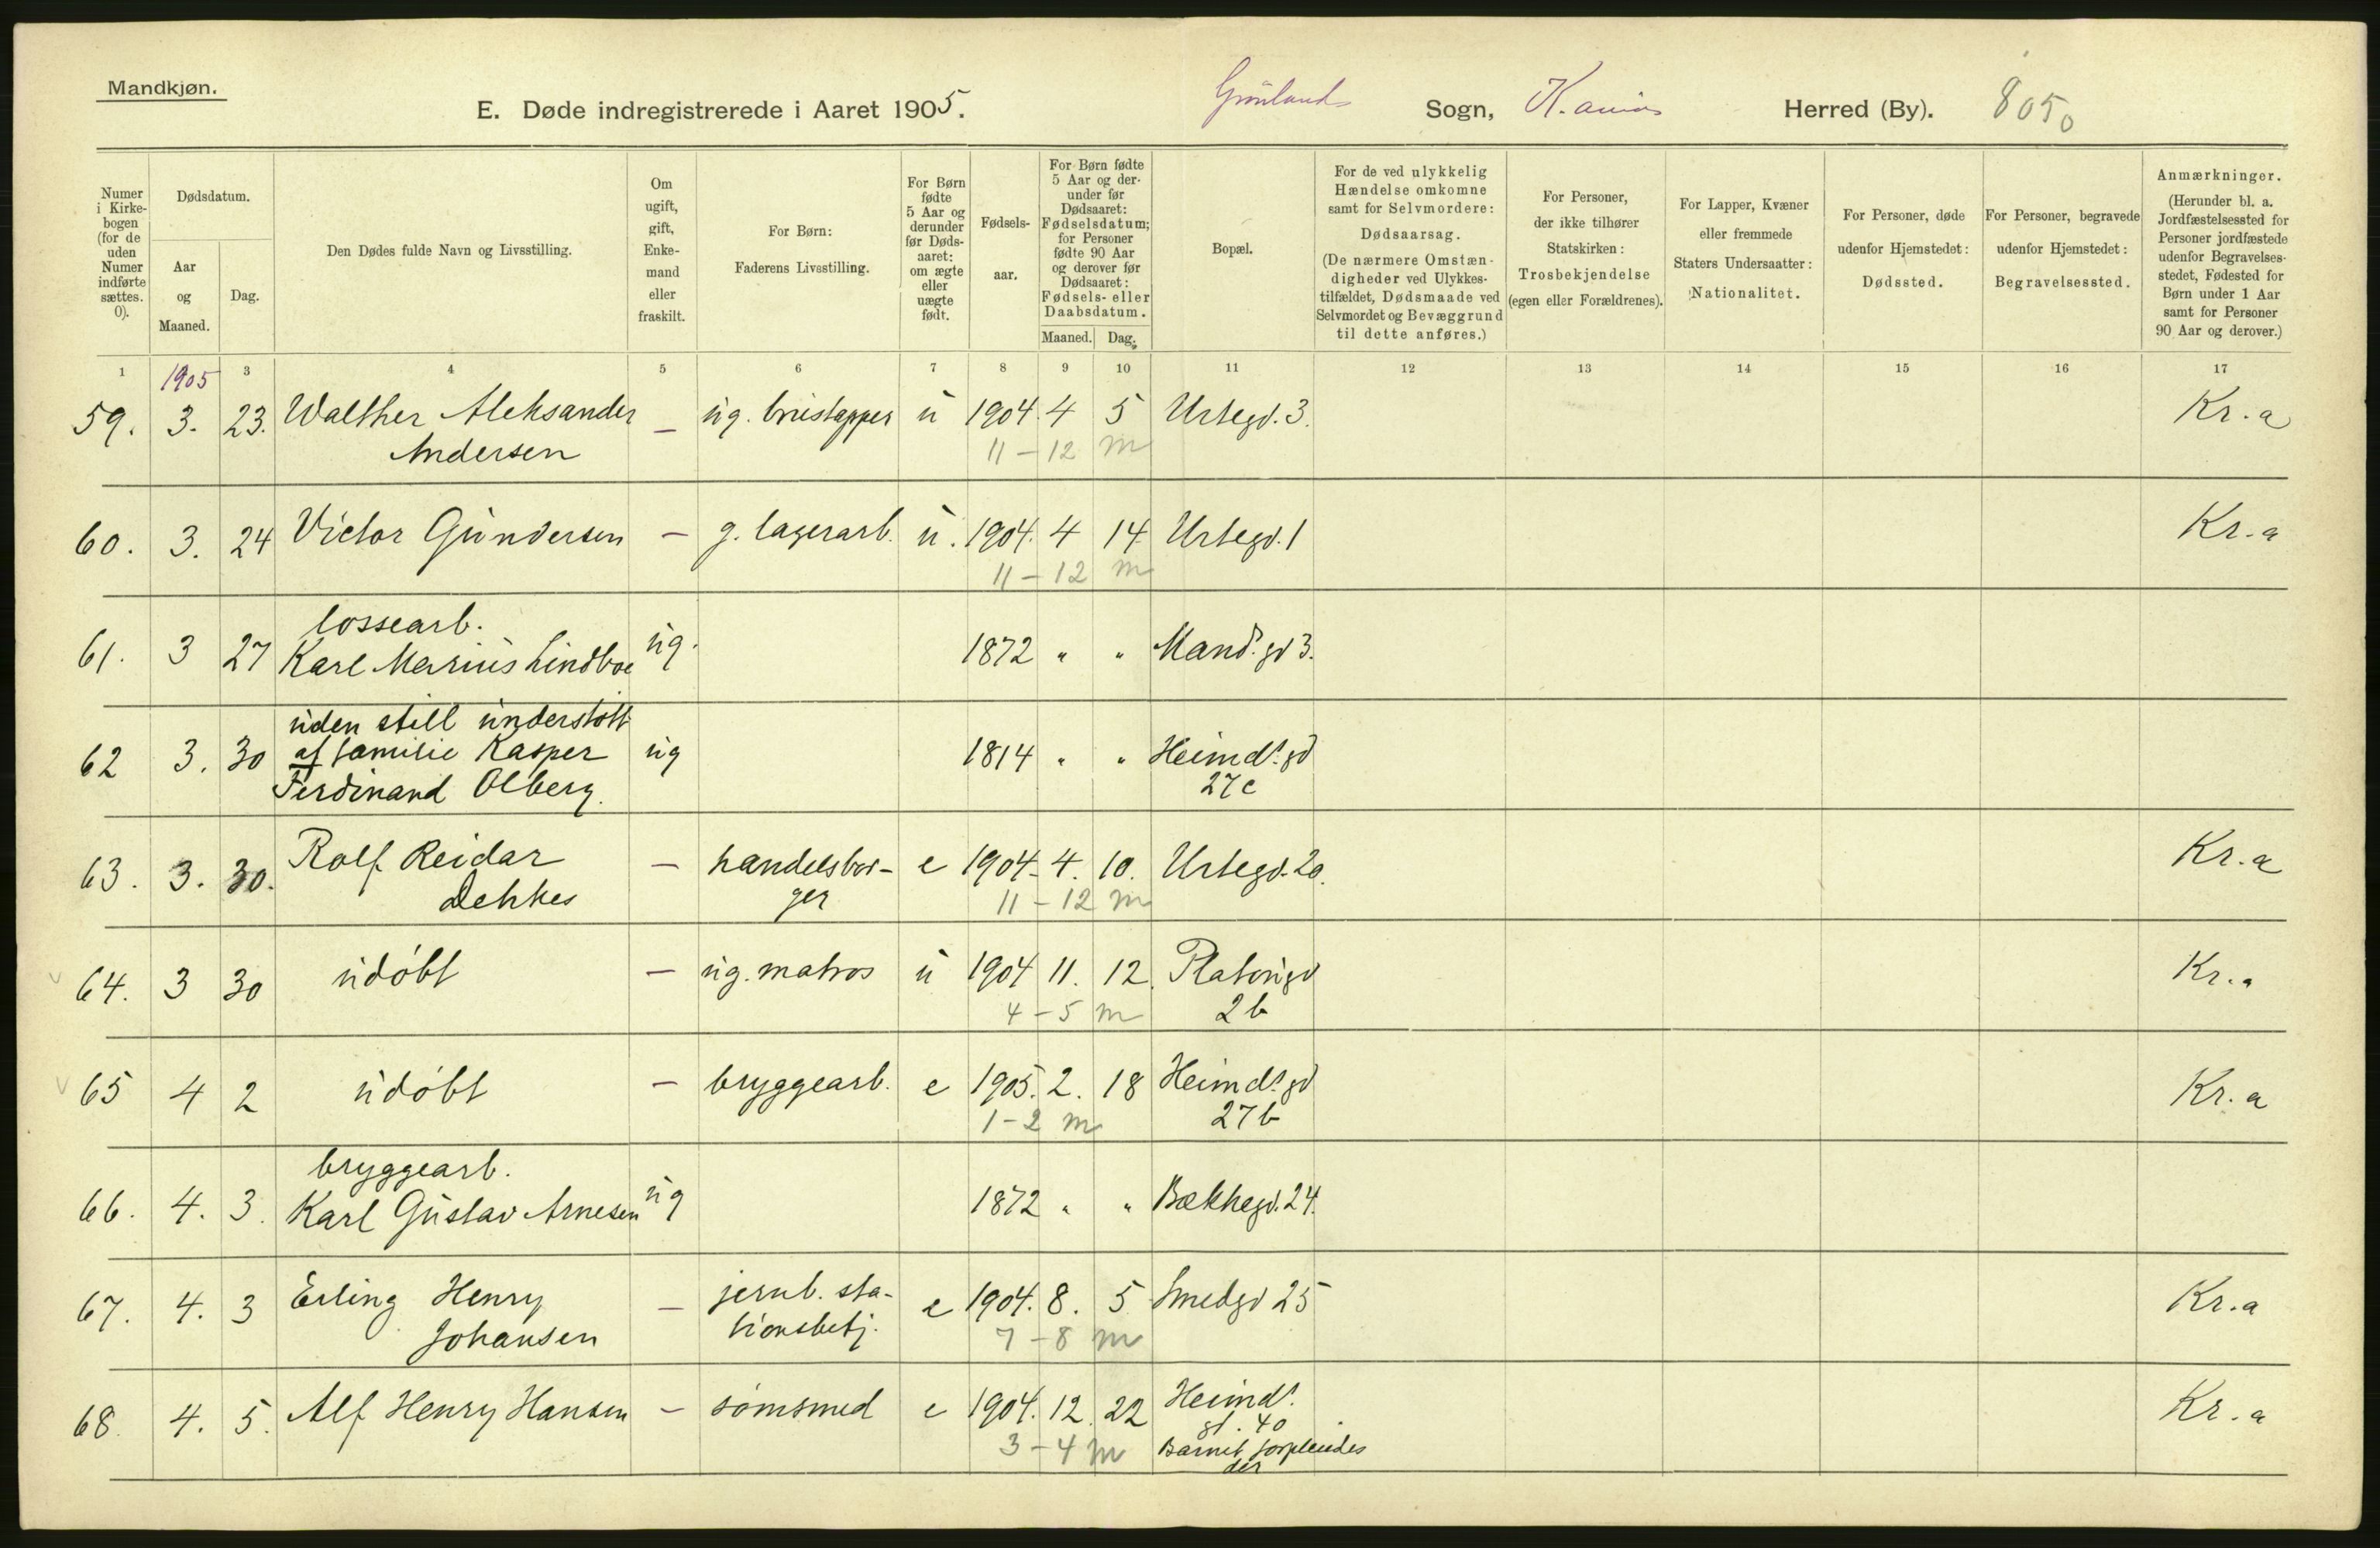 Mandkjøn.
E. Døde indregistrerede i Aaret 1905. Grønlands Sogn, K.ania Herred (By). 8050
Numer i Kirkebogen (for de uden Numer indførte sættes. 0).
Dødsdatum.
Aar og Maaned.
Dag.
Den Dødes fulde Navn og Livsstilling.
Om ugift, gift, Enkemand eller fraskilt.
For Børn: Faderens Livsstilling.
For Børn fødte 5 Aar og derunder før Dødsaaret: om ægte eller uægte født.
Fødselsaar.
For Børn fødte 5 Aar og derunder før Dødsaaret: Fødselsdatum; for Personer fødte 90 Aar og derover før Dødsaaret: Fødsels- eller Daabsdatum.
Maaned. Dag.
Bopæl.
For de ved ulykkelig Hændelse omkomne samt for Selvmordere: Dødsaarsag. (De nærmere Omstændigheder ved Ulykkestilfældet, Dødsmaade ved Selvmordet og Bevæggrund til dette anføres.)
For Personer, der ikke tilhører Statskirken: Trosbekjendelse (egen eller Forældrenes).
For Lapper, Kvæner eller fremmede Staters Undersaatter: Nationalitet.
For Personer, døde udenfor Hjemstedet: Dødssted.
For Personer, begravede udenfor Hjemstedet: Begravelsessted.
Anmærkninger. (Herunder bl. a. Jordfæstelsessted for Personer jordfæstede udenfor Begravelsesstedet, Fødested for Børn under 1 Aar samt for Personer 90 Aar og derover.)
1 3 4 5 6 7 8 9 10 11 12 13 14 15 16 17
1905
59. 3. 23. Walther Aleksander — ug. brustapper u 1904. 4 5 Urtegd. 3. Kr.a
Andersen 11 – 12 m
60. 3. 24 Victor Gundersen — g. lagerarb. u. 1904. 4 14 Urtegd. 1 Kr.a
11 – 12 m
lossearb.
61. 3 27 Karl Marius Lindboe ug. 1872 " " Mand. gd 3.
uden still understøtt
62 3. 30 af familie Kasper ug 1814 " " Heimd. gd
Ferdinand Olberg. 27c
63. 3. 30. Rolf Reidar — handelsbor- e 1904. 4. 10. Urtegd. 20. Kr.a
Dehkes ger 11 – 12 m
64. 3 30 udøbt — ug. matros u 1904 11. 12. Platougd Kr.a
4 – 5 m 2b
65 4 2 udøbt — bryggearb. e 1905. 2. 18 Heimd. gd Kr.a
1 – 2 m 27b
bryggearb.
66. 4. 3. Karl Gustav Arnesen ug 1872 " " Bækkegd. 24.
67. 4. 3 Erling Henry — jernb. sta- e 1904. 8. 5 Smedgd 25 Kr.a
Johansen tionsbetj. 7 – 8 m
68. 4. 5. Alf Henry Hansen — sømsmed e 1904. 12. 22 Heimd. Kr.a
gd. 40
3 – 4 m Barnet forpleiedes
der